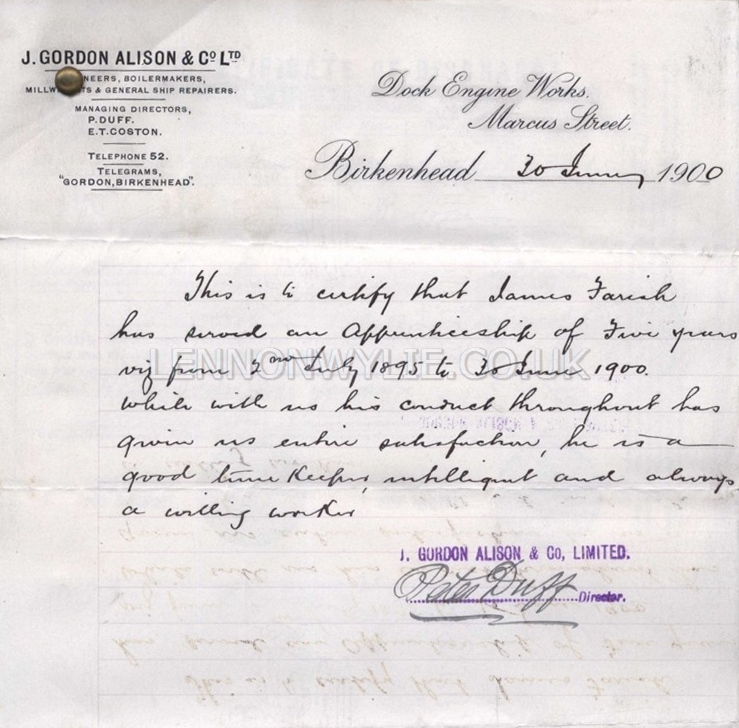 J. GORDON ALISON & Co LTD
NEERS, BOILERMAKERS,
MILLW TS & GENERAL SHIP REPAIRERS.
MANAGING DIRECTORS,
P. DUFF.
E.T. COSTON.
TELEPHONE 52.
TELEGRAMS,
"GORDON, BIRKENHEAD".
Dock Engine Works.
Marcus Street.
Birkenhead 30 June 1900
This is to certify that James Farish
has served an Apprenticeship of Five years
viz from 2nd July 1895 to 30 June 1900.
LENNONWYLIE.CO.UK
While with us his conduct throughout has
given us entire satisfaction, he is a
good time Keeper, intelligent and always
a willing worker
J. GORDON ALISON & Co, LIMITED.
Peter Duff Director.